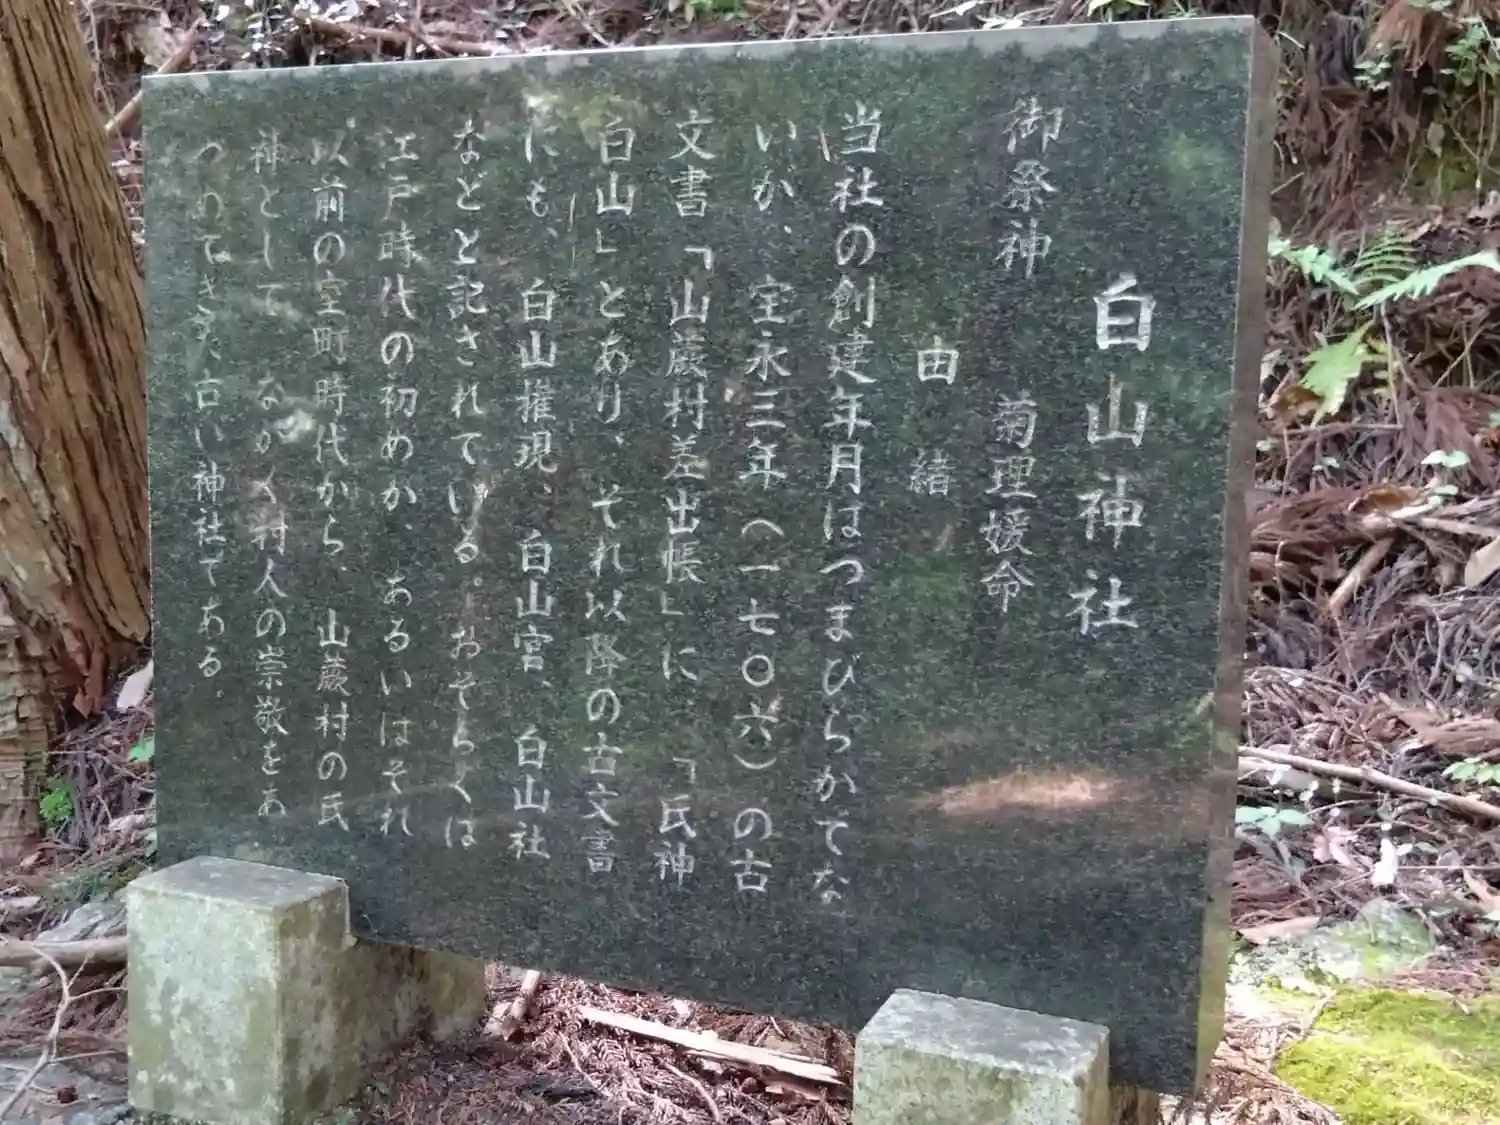 白山神社
御祭神　菊理媛命
由緒
当社の創建年月はつまびらかでな
いが、宝永三年（一七〇六）の古
文書「山蕨村差出帳」に、「氏神
白山」とあり、それ以降の古文書
にも、白山権現、白山宮、白山社
などと記されている。おそらくは
江戸時代の初めか、あるいはそれ
以前の室町時代から、山蕨村の氏
神として、ながく村人の崇敬をあ
つめてきた古い神社である。